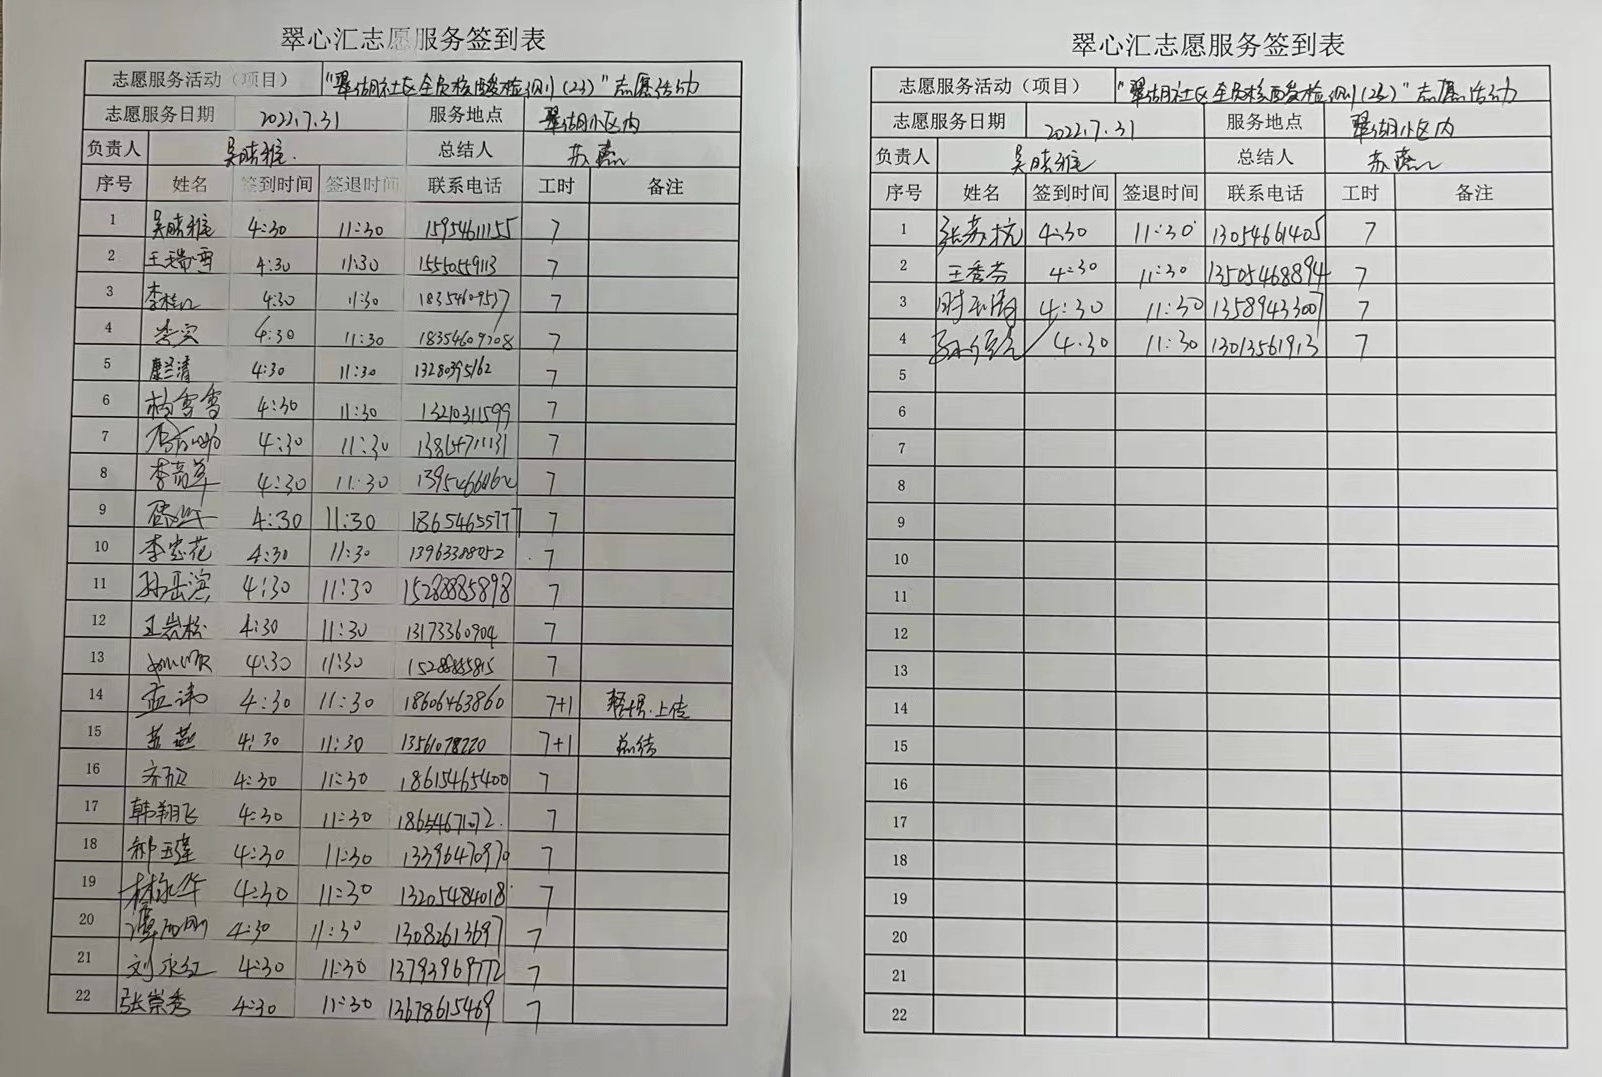 翠心汇志愿服务签到表
志愿服务活动（项目） "翠湖社区全员核酸检测（23）"志愿活动
志愿服务日期 2022.7.31 服务地点 翠湖小区内
负责人 吴晓雅 总结人 苏燕
序号 姓名 签到时间 签退时间 联系电话 工时 备注
1 吴晓雅 4:30 11:30 15954611155 7
2 王瑞雪 4:30 11:30 15550559113 7
3 4:30 11:30 18354609537 7
4 李实 4:30 11:30 18354609708 7
5 康兰清 4:30 11:30 13280395162 7
6 杨雪雪 4:30 11:30 13210311599 7
7 4:30 11:30 13864711131 7
8 4:30 11:30 7
9 4:30 11:30 18654655777 7
10 李忠花 4:30 11:30 13963388052 7
11 孙岳滨 4:30 11:30 15288885898 7
12 王岩松 4:30 11:30 13173360904 7
13 4:30 11:30 15288855815 7
14 孟涛 4:30 11:30 18606463860 7+1 上传
15 苏燕 4:30 11:30 13561078220 7+1 总结
16 齐欣 4:30 11:30 18615465400 7
17 韩翔飞 4:30 11:30 18654671072 7
18 郝玉莲 4:30 11:30 13396470970 7
19 林永华 4:30 11:30 13205484018 7
20 4:30 11:30 13082613697 7
21 刘永红 4:30 11:30 13793969772 7
22 张崇秀 4:30 11:30 13678615469 7
翠心汇志愿服务签到表
志愿服务活动（项目） "翠湖社区全员核酸检测（23）"志愿活动
志愿服务日期 2022.7.31 服务地点 翠湖小区内
负责人 吴晓雅 总结人 苏燕
序号 姓名 签到时间 签退时间 联系电话 工时 备注
1 张苏杭 4:30 11:30 13054661405 7
2 王秀芬 4:30 11:30 13505468894 7
3 4:30 11:30 13589433007 7
4 4:30 11:30 13013561913 7
5
6
7
8
9
10
11
12
13
14
15
16
17
18
19
20
21
22